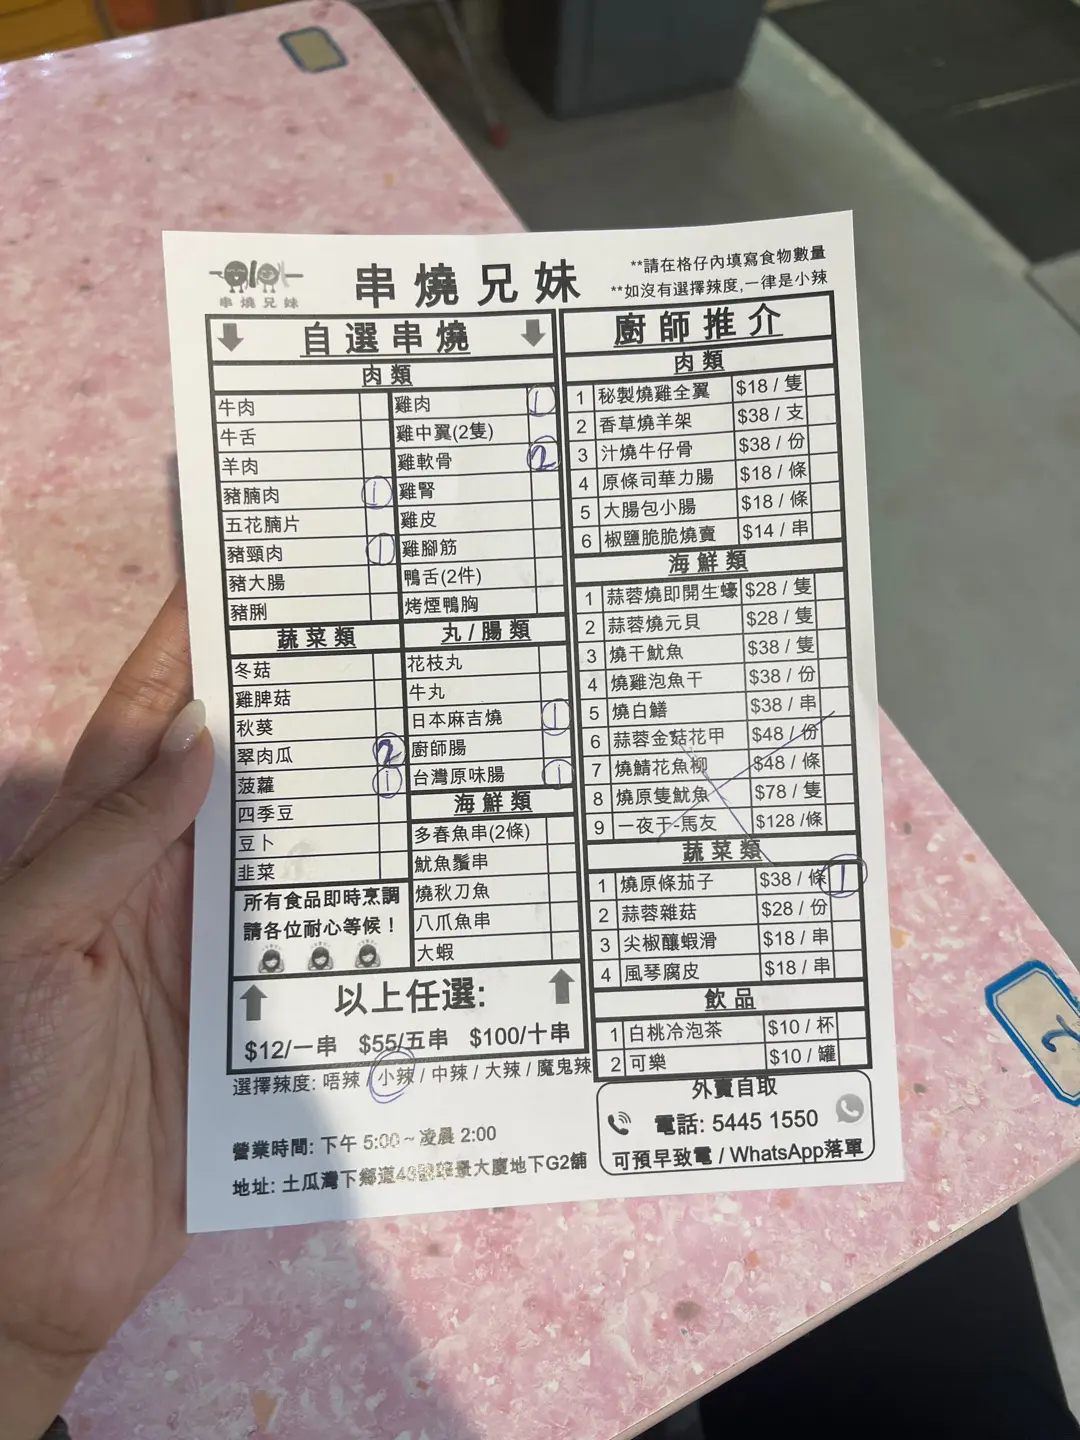 串燒兄妹
串燒兄妹
**請在格仔內填寫食物數量
**如沒有選擇辣度,一律是小辣
自選串燒
肉類
牛肉
牛舌
羊肉
豬腩肉 1
五花腩片
豬頸肉 1
豬大腸
豬脷
雞肉 1
雞中翼(2隻)
雞軟骨 2
雞腎
雞皮
雞腳筋
鴨舌(2件)
烤煙鴨胸
蔬菜類
冬菇
雞脾菇
秋葵
翠肉瓜 2
菠蘿 1
四季豆
豆卜
韭菜
丸/腸類
花枝丸
牛丸
日本麻吉燒 1
廚師腸
台灣原味腸 1
海鮮類
多春魚串(2條)
魷魚鬚串
燒秋刀魚
八爪魚串
大蝦
所有食品即時烹調
請各位耐心等候！
以上任選:
$12/一串 $55/五串 $100/十串
選擇辣度: 唔辣 / 小辣 / 中辣 / 大辣 / 魔鬼辣
營業時間: 下午 5:00 ~ 凌晨 2:00
地址: 土瓜灣下鄉道4景大廈地下G2舖
廚師推介
肉類
1 秘製燒雞全翼 $18 / 隻
2 香草燒羊架 $38 / 支
3 汁燒牛仔骨 $38 / 份
4 原條司華力腸 $18 / 條
5 大腸包小腸 $18 / 條
6 椒鹽脆脆燒賣 $14 / 串
海鮮類
1 蒜蓉燒即開生蠔 $28 / 隻
2 蒜蓉燒元貝 $28 / 隻
3 燒干魷魚 $38 / 隻
4 燒雞泡魚干 $38 / 份
5 燒白鱔 $38 / 串
6 蒜蓉金菇花甲 $48 / 份
7 燒鯖花魚柳 $48 / 條
8 燒原隻魷魚 $78 / 隻
9 一夜干-馬友 $128 /條
蔬菜類
1 燒原條茄子 $38 / 條 1
2 蒜蓉雜菇 $28 / 份
3 尖椒釀蝦滑 $18 / 串
4 風琴腐皮 $18 / 串
飲品
1 白桃冷泡茶 $10 / 杯
2 可樂 $10 / 罐
外賣自取
電話: 5445 1550
可預早致電 / WhatsApp落單
2